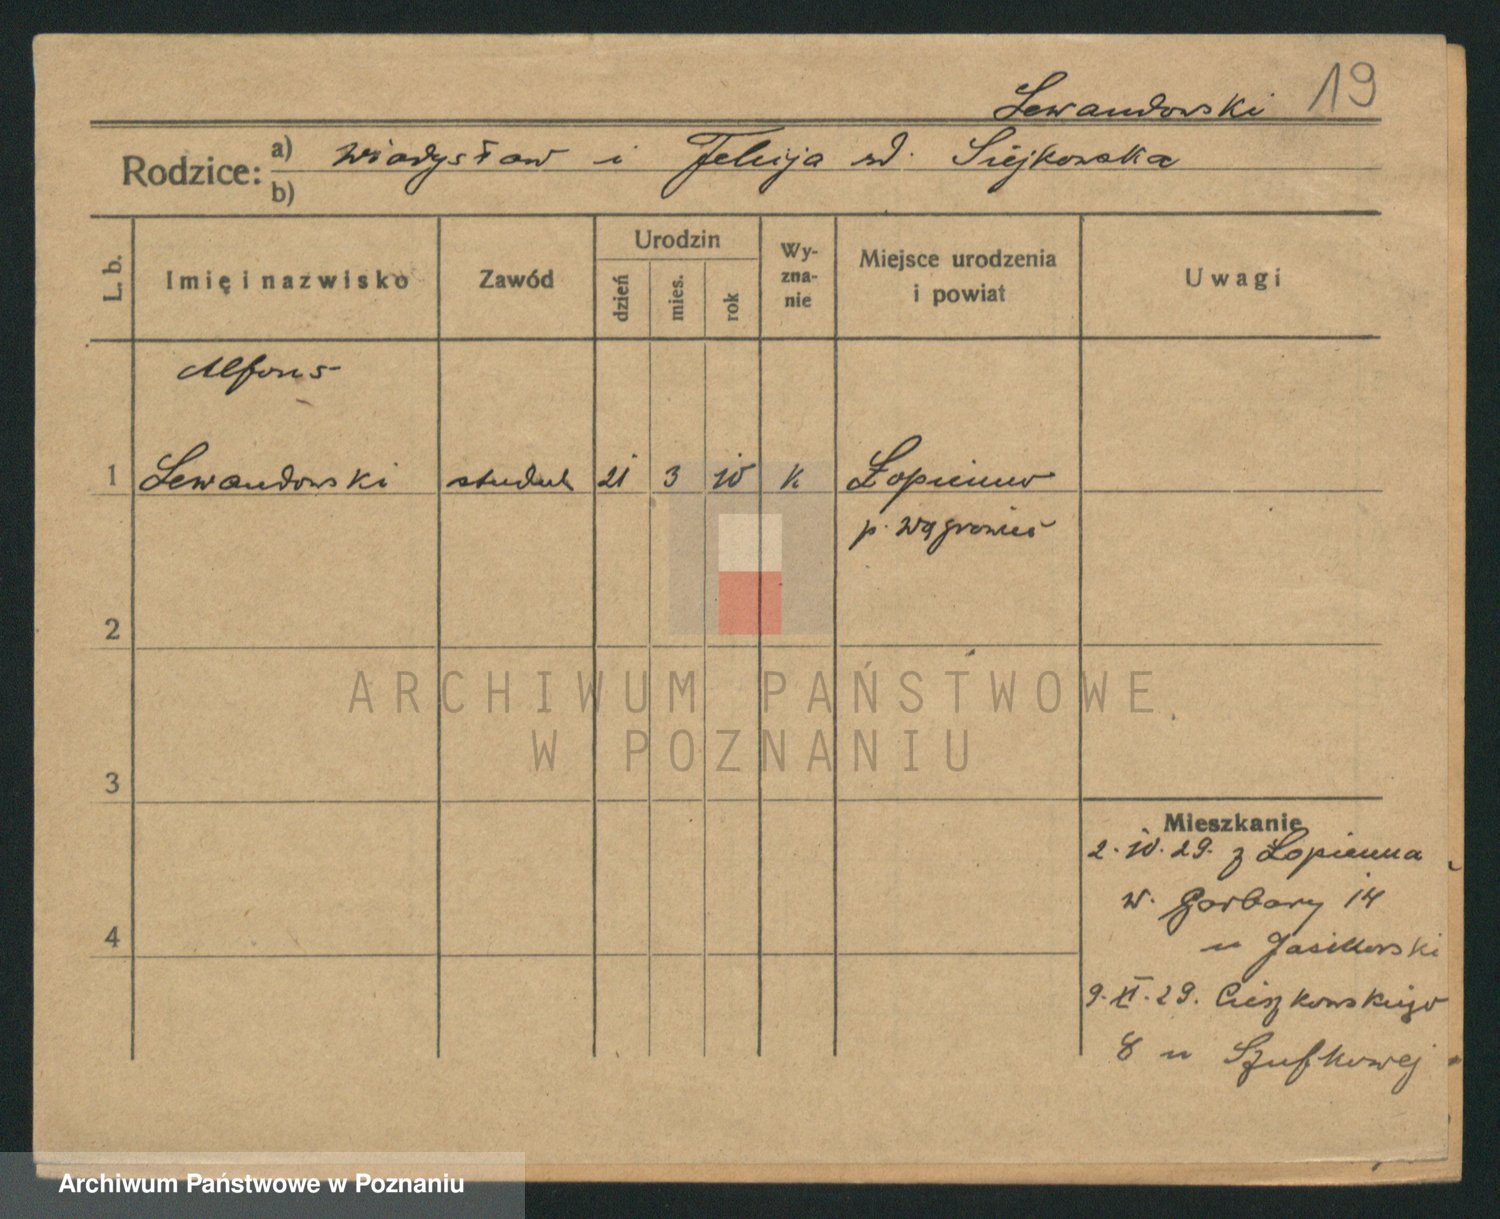 Lewandowski 19
Rodzice: a) Władysław i Felicja zd. Siejkowska
b)
L. b. Imię i nazwisko Zawód Urodzin dzień mies. rok Wy-zna-nie Miejsce urodzenia i powiat Uwagi
Alfons
1 Lewandowski student 21 3 10 k Łopienno
p. Wągrowiec
2
ARCHIWUM PAŃSTWOWE
W POZNANIU
3
Mieszkanie
2. 10. 29. z Łopienna
w. Garbary 14
4
u Jasikowski
9. XI. 29. Cieszkowskiego
8 u Szufkowej
Archiwum Państwowe w Poznaniu